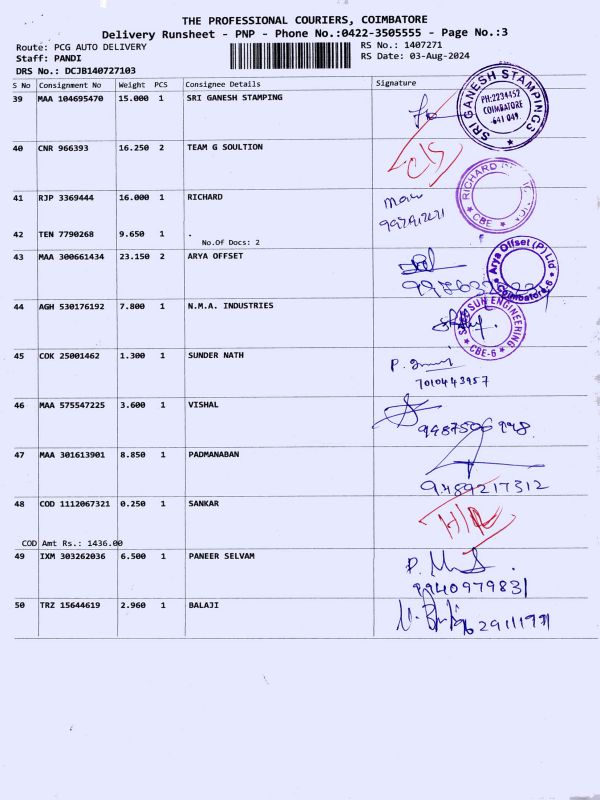 THE PROFESSIONAL COURIERS, COIMBATORE
Delivery Runsheet - PNP - Phone No.:0422-3505555 - Page No.:3
Route: PCG AUTO DELIVERY RS No.: 1407271
Staff: PANDI RS Date: 03-Aug-2024
DRS No.: DCJB140727103
S No Consignment No Weight PCS Consignee Details Signature
39 MAA 104695470 15.000 1 SRI GANESH STAMPING
SRI GANESH STAMPINGS
PH:2234452
COIMBATORE
641 049
40 CNR 966393 16.250 2 TEAM G SOULTION
41 RJP 3369444 16.000 1 RICHARD
RICHARD
CBE
42 TEN 7790268 9.650 1 .
No.Of Docs: 2
43 MAA 300661434 23.150 2 ARYA OFFSET
Arya Offset (P) Ltd
Coimbatore-6
44 AGH 530176192 7.800 1 N.M.A. INDUSTRIES
SUN ENGINEERING
CBE-6
45 COK 25001462 1.300 1 SUNDER NATH
P.
7010443957
46 MAA 575547225 3.600 1 VISHAL
47 MAA 301613901 8.850 1 PADMANABAN
9489217312
48 COD 1112067321 0.250 1 SANKAR
COD Amt Rs.: 1436.00
49 IXM 303262036 6.500 1 PANEER SELVAM
9940979831
50 TRZ 15644619 2.960 1 BALAJI